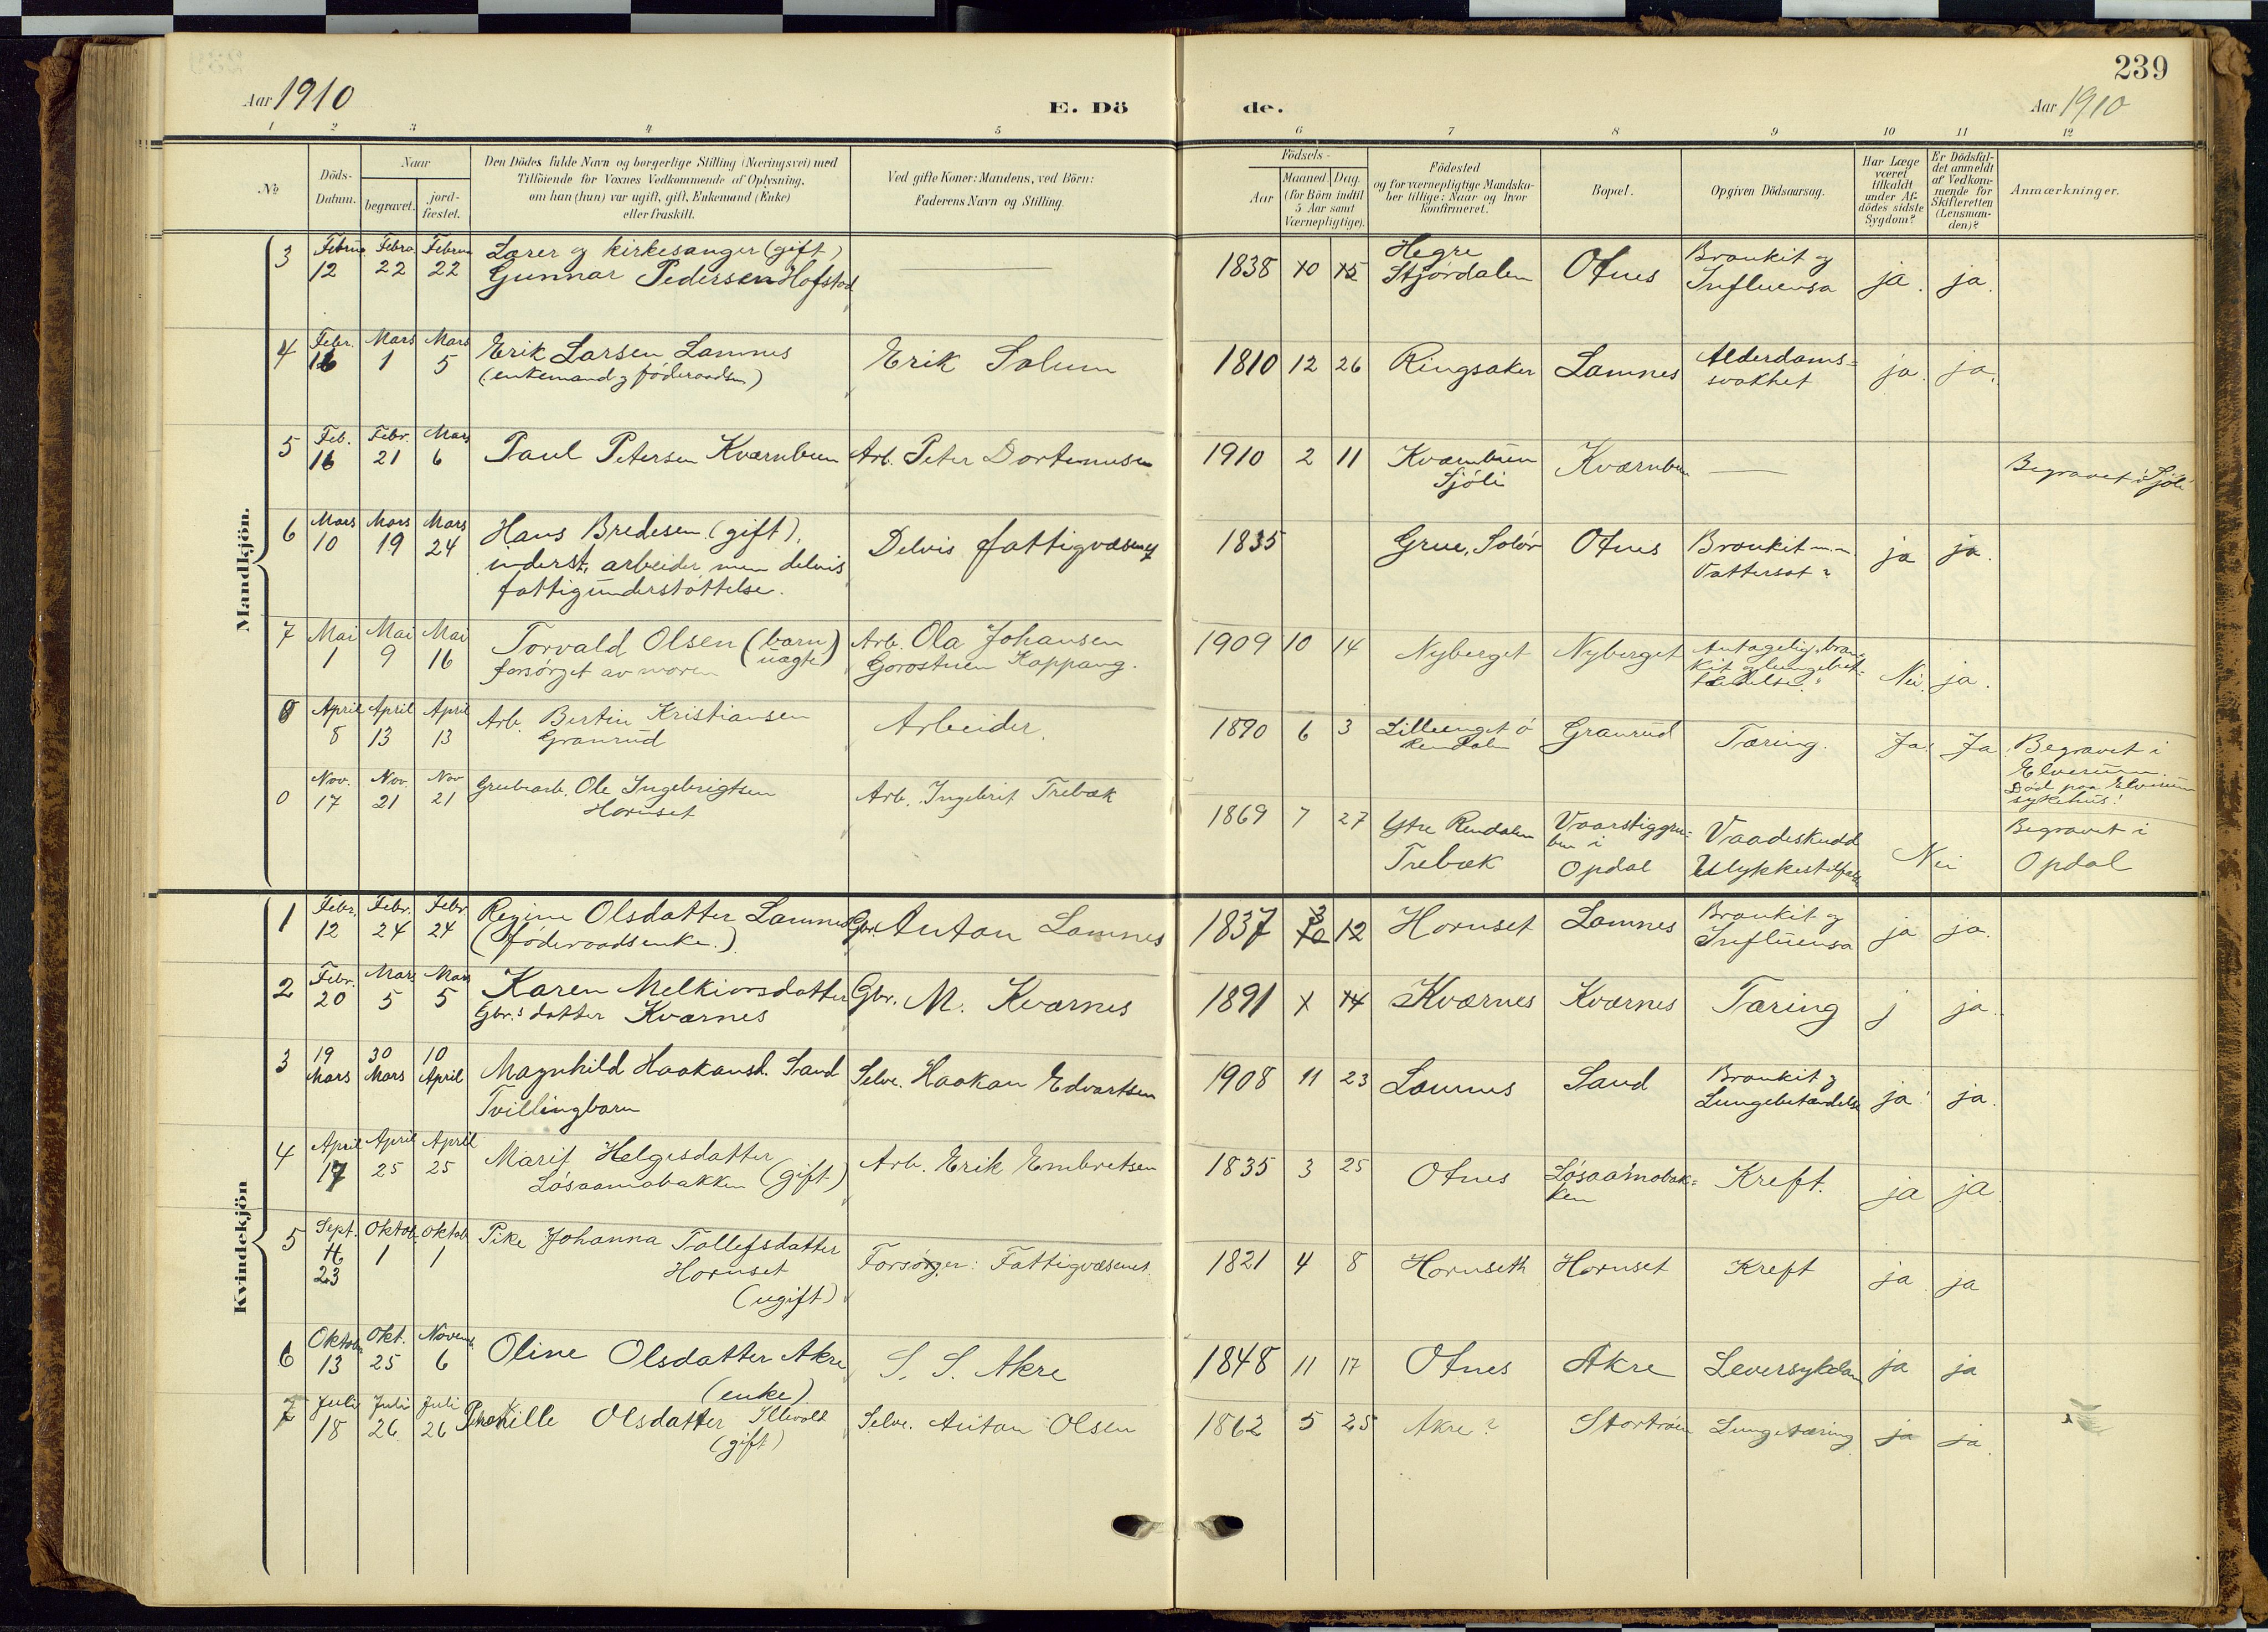 239
Aar 1910
E. Dö
de.
Aar 1910
1 2 3 4 5 6 7 8 9 10 11 12
No
Döds-
Datum.
Naar
begravet.
jord-
fæstet.
Den Dödes fulde Navn og borgerlige Stilling (Næringsvei) med
Tilföiende for Voxnes Vedkommende af Oplysning,
om han (hun) var ugift, gift, Enkemand (Enke)
eller fraskilt.
Ved gifte Koner: Mandens, ved Börn:
Faderens Navn og Stilling.
Födsels-
Aar
Maaned
Dag
(for Börn indtil
5 Aar samt
Værnepligtige).
Födested
og for værnepligtige Mandska-
ber tillige: Naar og hvor
konfirmeret.
Bopæl.
Opgiven Dödsaarsag.
Har Læge
været
tilkaldt
under Af-
dödes sidste
Sygdom?
Er Dödsfal-
det anmeldt
af Vedkom-
mende for
Skifteretten
(Lensman-
den)?
Anmærkninger.
Mandkjön.
3 12 Febr 22 22
Lærer og kirkesanger (gift)
Gunnar Pedersen Hofstad
—
1838 10 15
Hegre
Stjørdalen
Otnes
Bronkit og
Influensa
ja. ja.
4 Febr. 16 Mars 1 Mars 5
Erik Larsen Lomnes
(enkemand og føderaadsm)
Erik Solum
1810 12 26
Ringsaker
Lomnes
Alderdoms-
svakhet
ja. ja.
5 Feb. 16 Febr. 21 Mars 6
Paul Petersen Kværnbuen
Arb. Peter Dortemusen
1910 2 11
Kværnbuen
Sjøli
Kværnbuen
—
Begravet i Sjøli
6 Mars 10 Mars 19 Mars 24
Hans Bredesen (gift),
inderst, arbeider men delvis
fattigunderstøttelse.
Delvis fattigvæsenet
1835
Grue, Solør
Otnes
Bronkit m.m
Vattersot?
ja ja.
7 Mai 1 Mai 9 Mai 16
Torvald Olsen (barn)
forsørget av moren (uægte)
Arb. Ola Johansen
Gorostuen Koppang.
1909 10 14
Nyberget
Nyberget
Antagelig bron-
kit og lungebet-
tændelse
Nei ja.
8 April 8 April 13 April 13
Arb. Bertin Kristiansen
Granrud
Arbeider.
1890 6 3
Lilleenget ø
Rendalen
Granrud
Tæring.
Ja. Ja
Begravet i
Elverum.
Død paa Elverum
sykehus!
Nov. 17 Nov. 21 Nov 21
Grubearb. Ole Ingebrigtsen
Hornset
Arb. Ingebrit Trebæk
1869 7 27
Ytre Rendalen
Trebæk
Vaarstiggru-
ben i
Opdal
Vaadeskudd
Ulykkestilfælde
Nei
Begravet i
Opdal
Kvindekjön
1 Febr. 12 Febr. 24 Febr. 24
Regine Olsdatter Lomnes
(føderaadsenke.)
Gbr. Anton Lomnes
1837 3 12
Hornset
Lomnes
Bronkit og
Influensa
ja ja.
2 Febr. 20 Mars 5 Mars 5
Karen Melkiorsdatter
Gbr.s datter Kværnes
Gbr. M. Kværnes
1891 X 14
Kværnes
Kværnes
Tæring
j ja.
3 19 Mars 30 Mars 10 April
Magnhild Haakansd. Sand
Tvillingbarn
Selve. Haakan Edvartsen
1908 11 23
Lomnes
Sand
Bronkit og
Lungebetændelse
ja. ja.
4 April 17 April 25 April 25
Marit Helgesdatter
Løsaamobakken (gift)
Arb. Erik Embretsen
1835 3 25
Otnes
Løsaamobak-
ken
Kreft.
ja ja
5 Sept. 23 Oktob. 1 Oktob 1
Pike Johanna Tollefsdatter
Hornset
(ugift)
Forsørger: Fattigvæsenet.
1821 4 8
Hornseth
Hornset
Kreft
ja ja
6 Oktober 13 Okt. 25 Novemb. 6
Oline Olsdatter Akre
(enke)
S. S. Akre
1848 11 17
Otnes
Akre
Leversykdom
ja ja
7 Juli 18 Juli 26 Juli 26
Pernille Olsdatter
(gift)
Selve. Anton Olsen
1862 5 25
Akre?
Stortrøen
Lungetæring
ja ja.